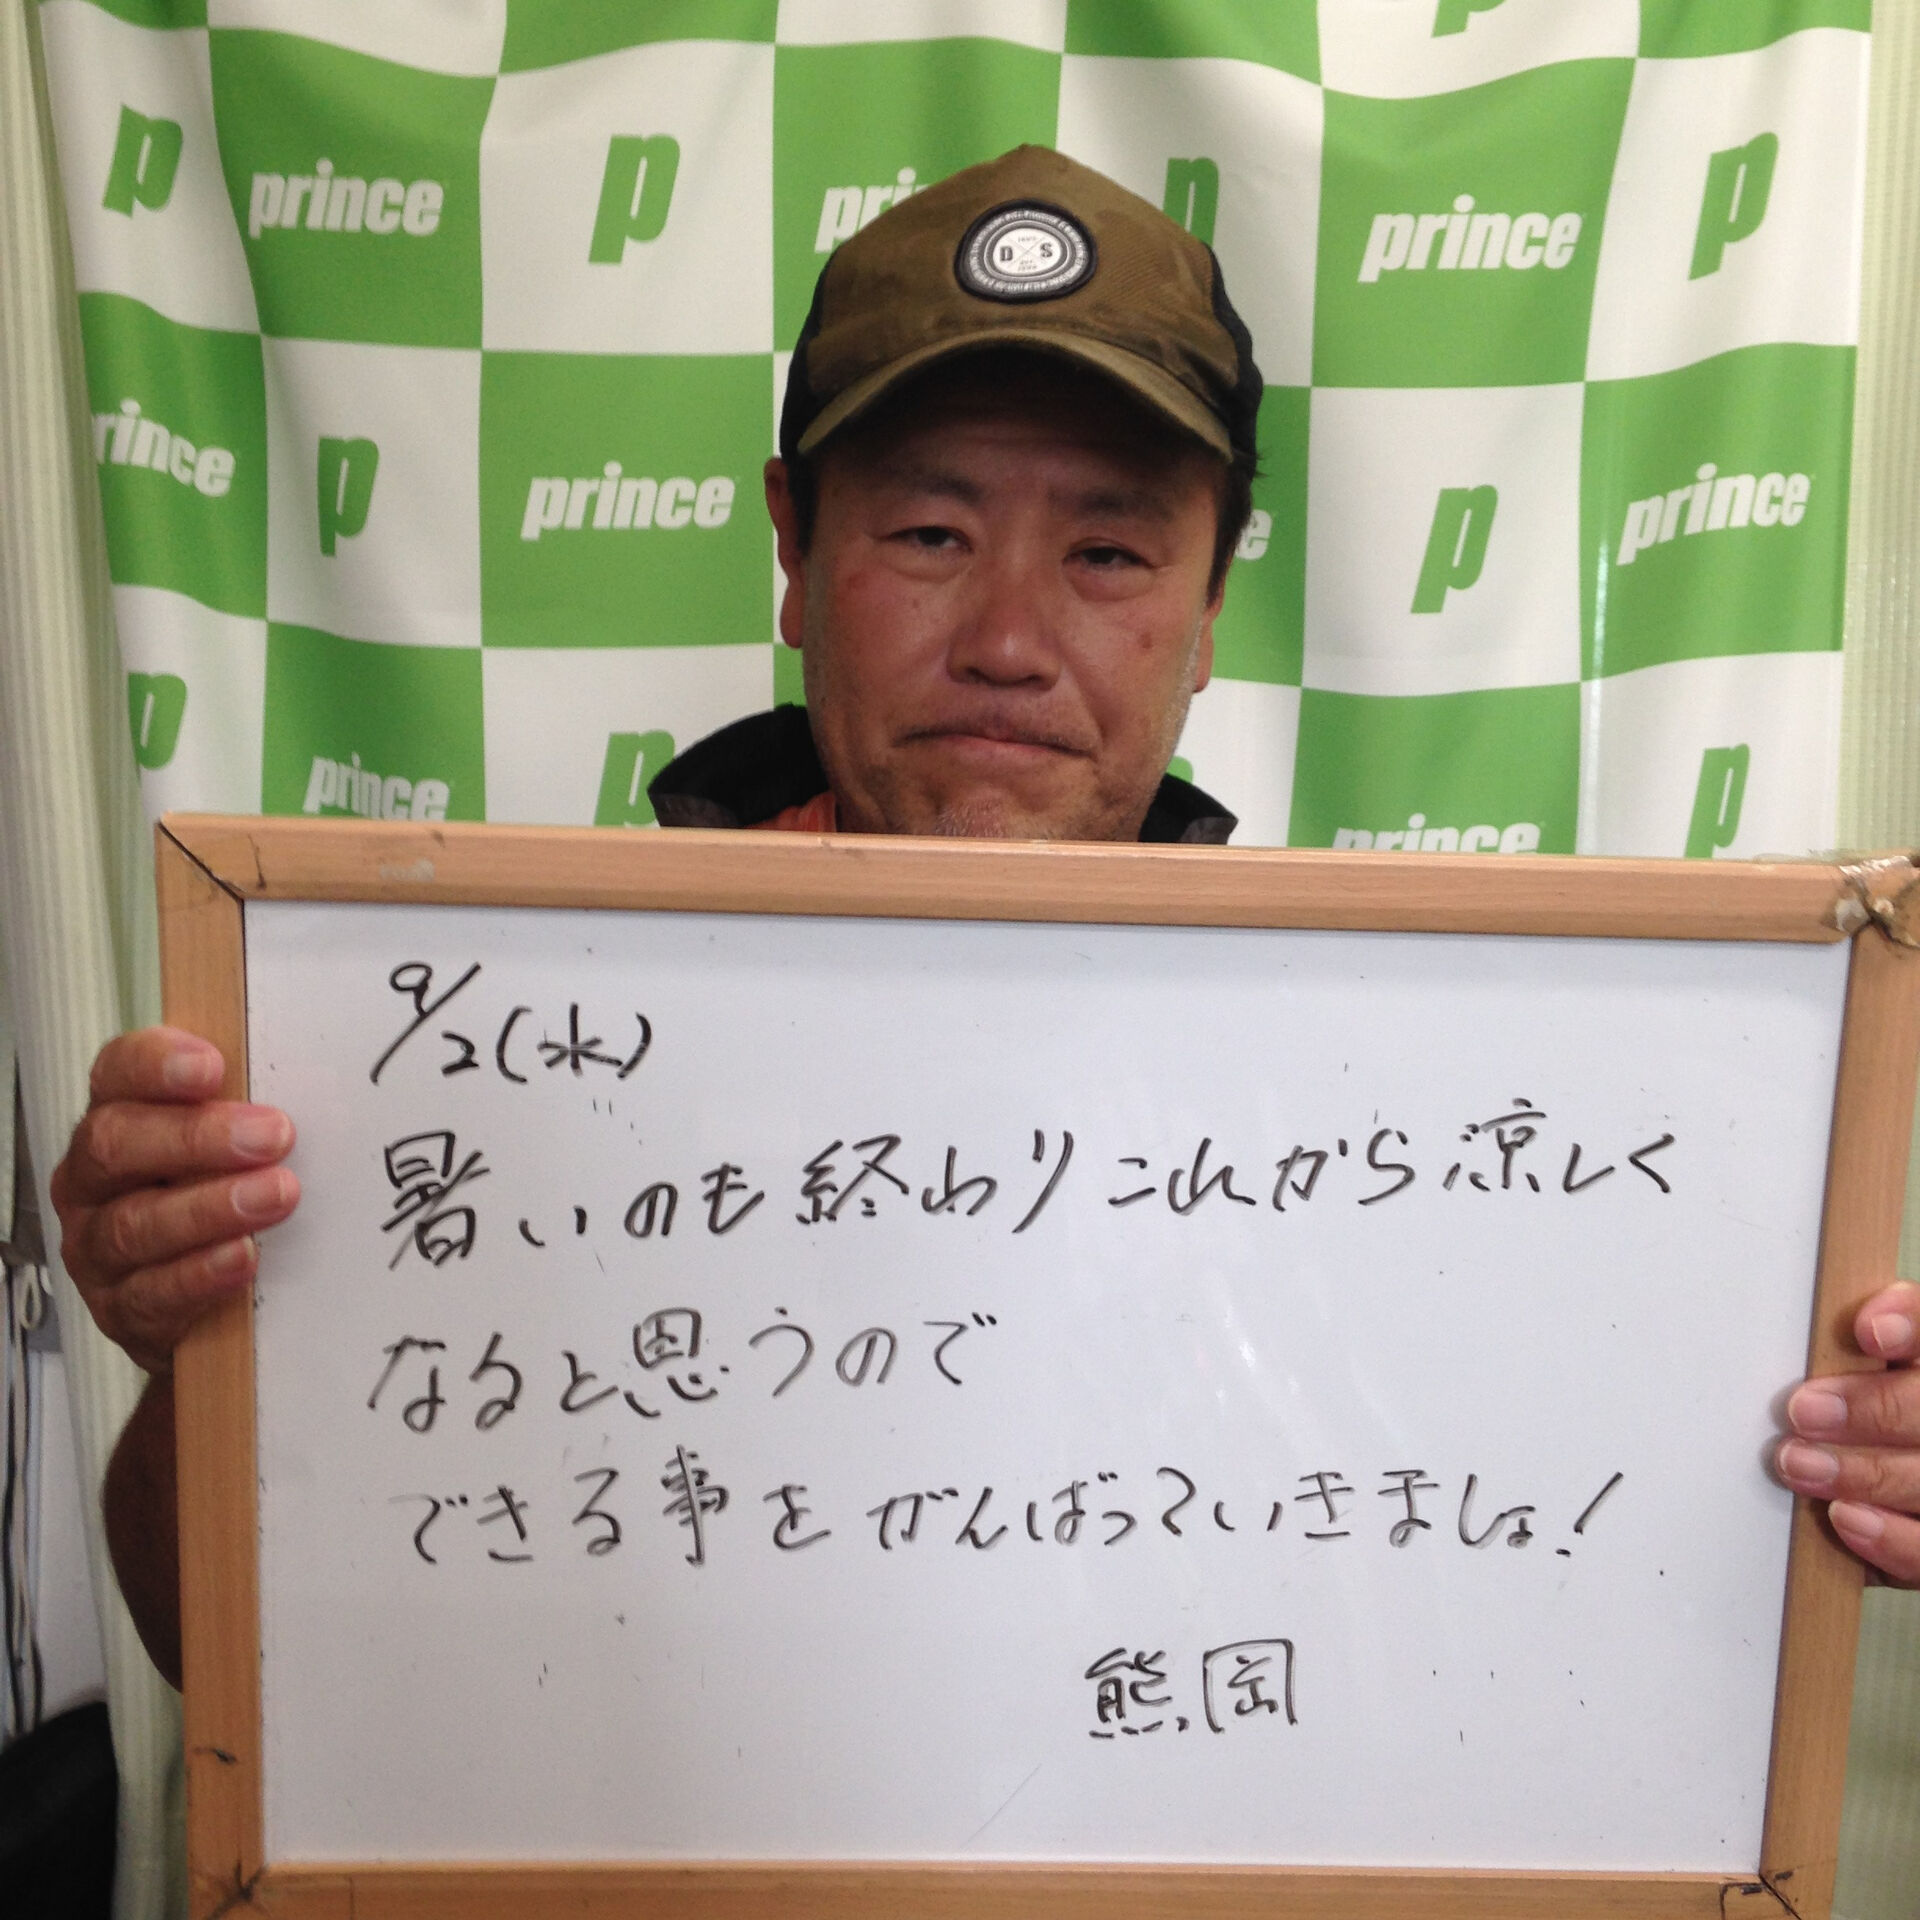 p prince p prince p prince p
D S
rince p prince e p prince
p prince p prince p
9/2(水)
暑いのも終わりこれから涼しく
なると思うので
できる事をがんばっていきましょ!
熊岡